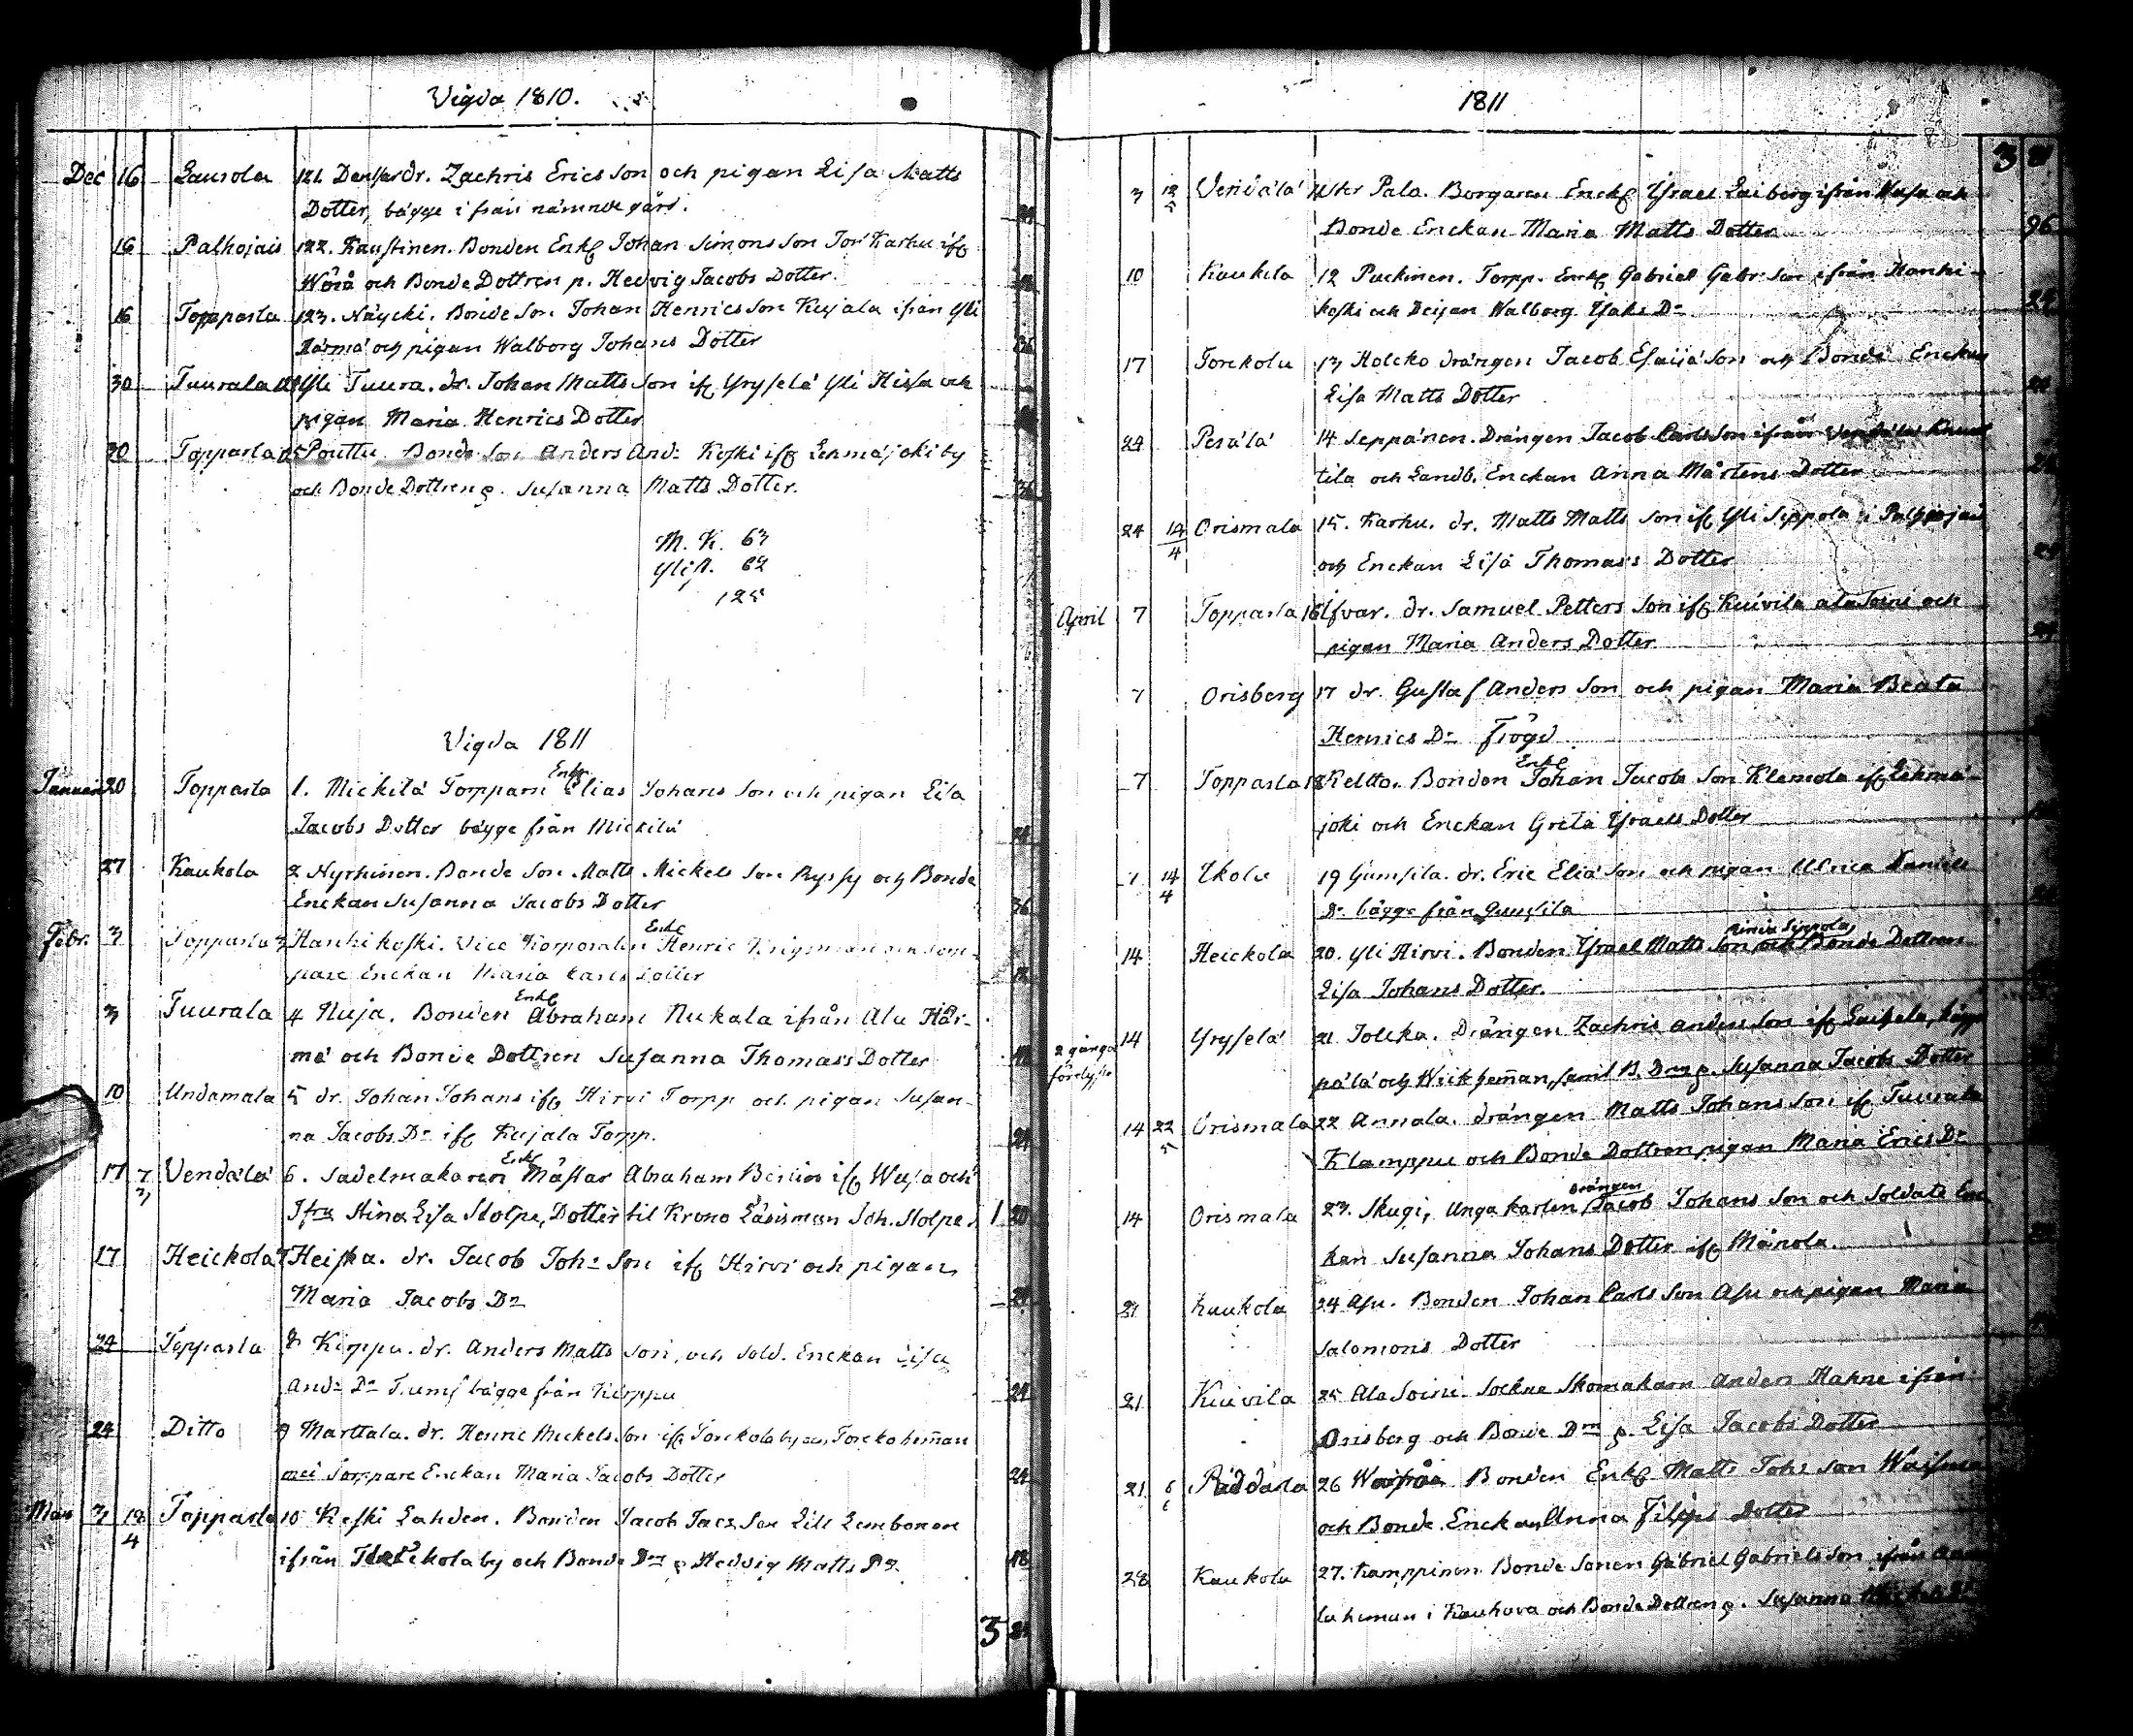 Vigda 1810.
Dec 16 Laurola 121. dr. Zachris Ericsson och pigan Lisa Matts
Dotter, bägge ifrån nämnde gård.
16 Palhojais 122. Kaustinen. Bonden Enkl Johan Simons Son Karhu ifr
Wörå och Bonde Dottren p. Hedvig Jacobs Dotter.
16 Topparla 123. Näycki. Bonde Son Johan Henrics Son Kujala ifrån Yli
Härmä och pigan Walborg Johans Dotter 36
30 Tuurala Yli Tuura. dr. Johan Matts Son ifr Yrysselä Yli Hissa och
pigan Maria Henrics Dotter
30 Topparla Pouttu Bonde Son Anders And: Koski ifr Lehmäjoki by
och Bonde Dottren p. Susanna Matts Dotter. 36
M. K. 63
Ylist. 62
125
Vigda 1811
Januari 20 Topparla 1. Mickilä Torparn Enkl. Elias Johans Son och pigan Lisa
Jacobs Dotter bägge från Mickilä 24
27 Kaukola 2 Nyrhinen. Bonde Son Matts Mickels Son Ryssy och Bonde
Enckan Susanna Jacobs Dotter 36
Febr. 3 Topparla 3 Hanhikoski. Vice Korporalen Enkl Henric
pare Enckan Maria Carls Dotter
3 Tuurala 4 Nuja. Bonden Enkl Abraham Nukala ifrån Ala Här-
mä och Bonde Dottren Susanna Thomas's Dotter 48
10 Undamala 5 dr. Johan Johans ifr Hirvi Torpp och pigan Susan-
na Jacobs Dr ifr Kujala Torpp. 24
17 7/3 Vendälä 6. Sadelmakaren Enkl Mästar Abraham Berlin ifr Wasa och
Jfru Stina Lisa Stolpe, Dotter til Krono Länsman Joh. Stolpe. 1 20
17 Heickola 7 Heiska. dr. Jacob Joh: Son ifr Hirvi och pigan
Maria Jacobs Dr 24
24 Topparla 8 Kimppu. dr. Anders Matts Son, och Sold. Enckan Lisa
And: Dr Trumf bägge från Kimppu 24
24 Ditto 9 Marttala. dr. Henric Mickels Son ifr Torckola by Torcko heman
med Torppare Enckan Maria Jacobs Dotter 24
Mars 3 12/4 Topparla 10 Keski Lahden. Bonden Jacob Jacs Son Lill Lembonen
ifrån by och Bonde Dr p Hedvig Matts Dr. 48
3 24
1811
3 24
3 12/5 Vendälä Pala. Borgaren Enckl Israel Laiberg ifrån Wasa och
Bonde Enckan Maria Matts Dotter 96
10 Kaukola 12 Puckinen. Torpp. Enkl Gabriel Gabr: Son ifrån Hanhi-
koski och Deijan Walborg Isaks Dr 24
17 Torckola 13 Holcko drängen Jacob Esaijä Son och Bonde Enckan
Lisa Matts Dotter 24
24 Pesälä 14 Seppänen. Drängen Jacob Carls Son ifrån
tila och Landb. Enckan Anna Mårtens Dotter 24
24 14/4 Orismala 15. Karhu. dr. Matts Matts Son ifr Yli Seppola i Palhojais
och Enckan Lisa Thomas's Dotter 24
April 7 Topparla 16 Ifvar. dr. Samuel Petters Son ifr Kuivila Ala Soini och
pigan Maria Anders Dotter
7 Orisberg 17 dr. Gustaf Anders Son och pigan Maria Beata
Henrics Dr Frögd
7 Topparla 18 Keltto. Bonden Enkl Johan Jacobs Son Klemola ifr Lehmä-
joki och Enckan Greta Israels Dotter
7 14/4 Ikola 19 Gumsila. dr. Eric Eliä Son och pigan Ulrica Daniels
Dr bägge från Gumsila
14 Heickola 20. Yli Hirvi. Bonden Israel Matts Son och Bonde Dottren
Lisa Johans Dotter.
2 gånga förelyste 14 Yrysselä 21 Jolcka. Drängen Zachris Anders Son ifr
pälä och heman, samt B. Drn p. Susanna Jacobs Dotter
14 22/5 Orismala 22 Annala. drängen Matts Johans Son ifr Tuurala
Klamppu och Bonde Dottren pigan Maria Erics Dr
14 Orismala 23. Skugi, Unga karlen drängen Jacob Johans Son och Soldate En
kan Susanna Johans Dotter ifr Månola.
21 Kaukola 24 Asu. Bonden Johan Carls Son Asu och pigan Maria
Salomons Dotter
21 Kuivila 25 Ala Soini. Sockne Skomakarn Anders Hahne ifrån
Orisberg och Bonde Drn p. Lisa Jacobs Dotter
21 6/6 26 Bonden Enkl Matts Joh: Son
och Bonde Enckan Anna Filips Dotter
28 Kaukola 27. Kamppinen Bonde Sonen Gabriel Gabriels Son ifrån
la heman i Kauhava och Bonde Dottren p. Susanna